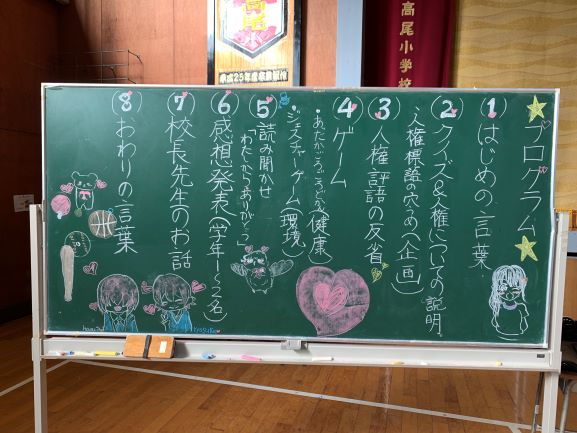 高尾小学校
平成25年度卒業記念
高尾小
プログラム
① はじめの言葉
② クイズ&人権についての説明
人権標語の穴うめ(企画)
③ 人権標語の反省
④ ゲーム
(健康)
・ジェスチャーゲーム(環境)
⑤ 読み聞かせ
「わたしからありがとう」
⑥ 感想発表(学年1〜2名)
⑦ 校長先生のお話
⑧ おわりの言葉